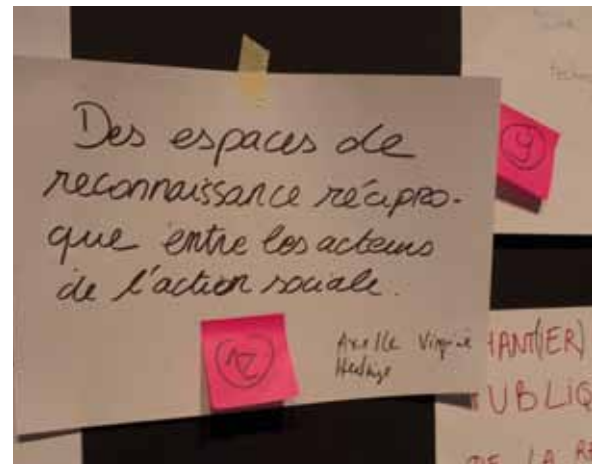 Des espaces de
reconnaissance récipro-
que entre les acteurs
de l'action sociale.
Axelle Virginie
12
9
HANT(IER)
PUBLIQ
DE LA RE